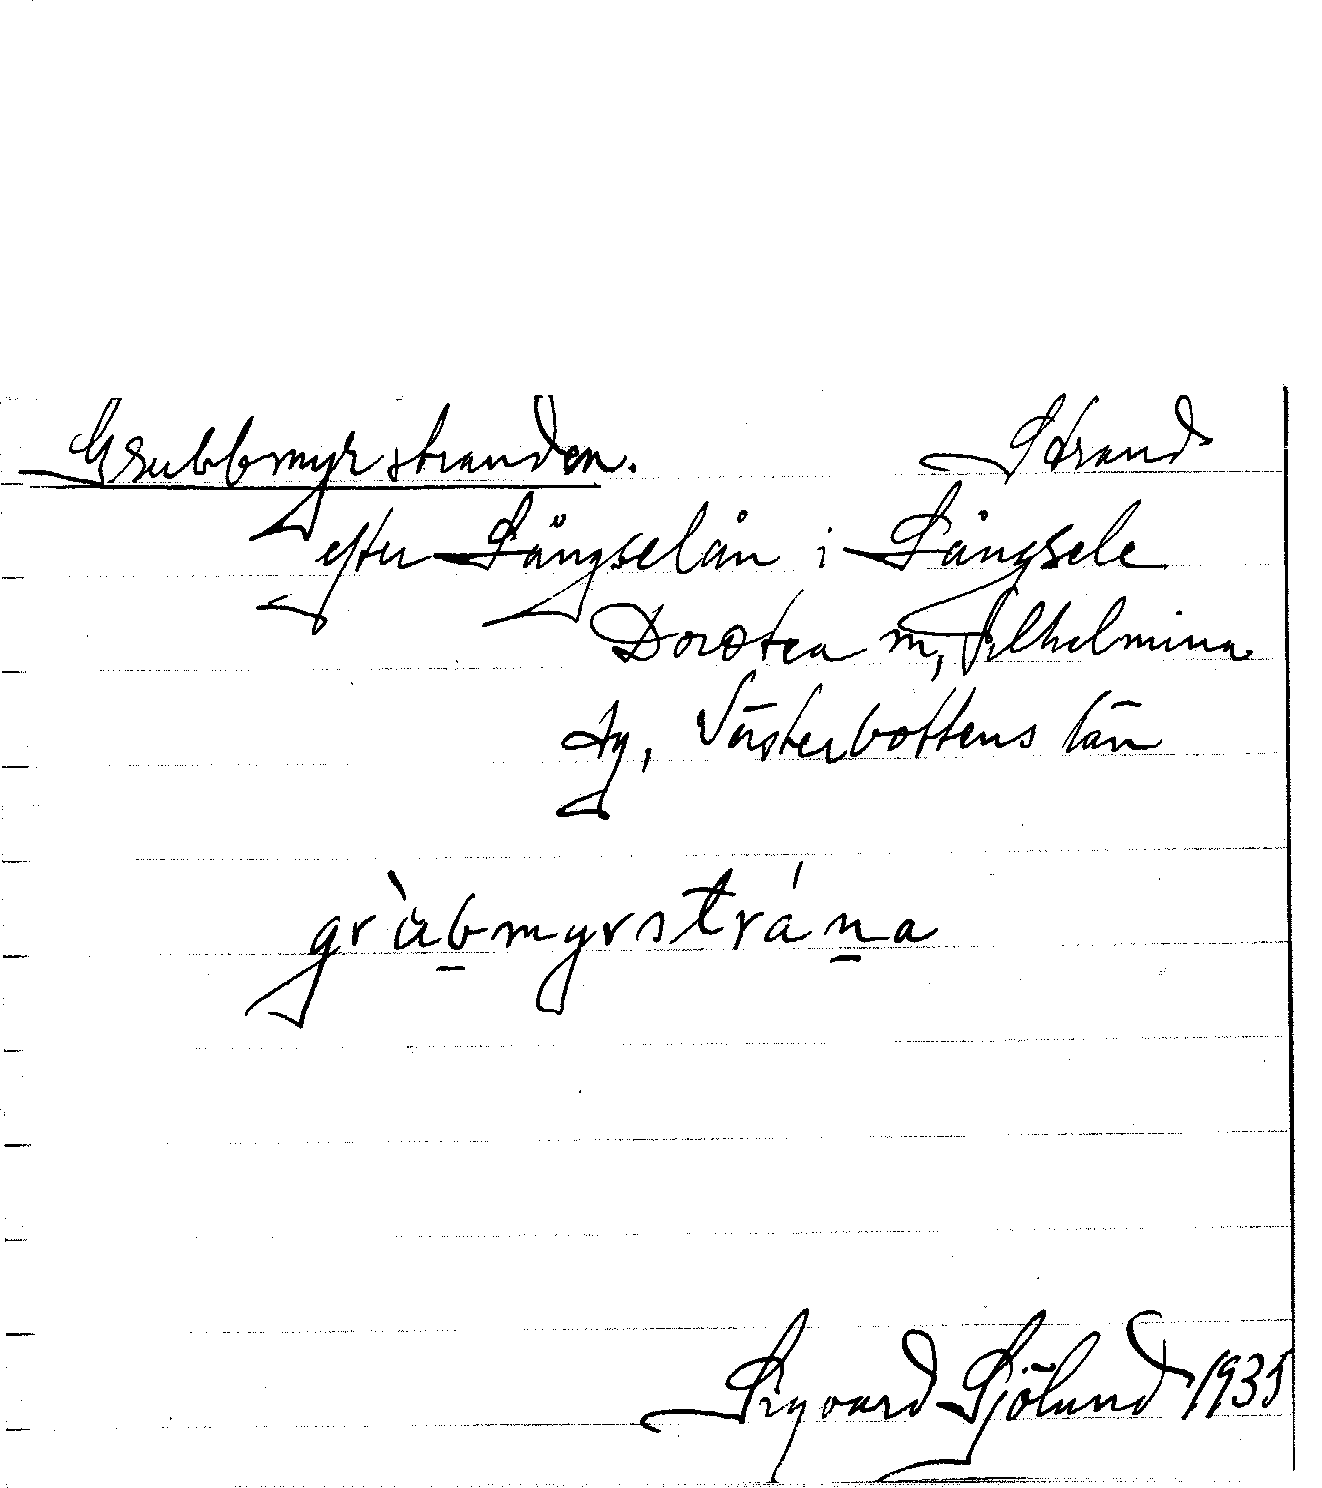 Grubbmyrstranden. Strand
efter Långselån i Långsele
Dorotea m, Vilhelmina
tg, Västerbottens län
gru̠bmyrstrána̠
Sigvard Sjölund 1935